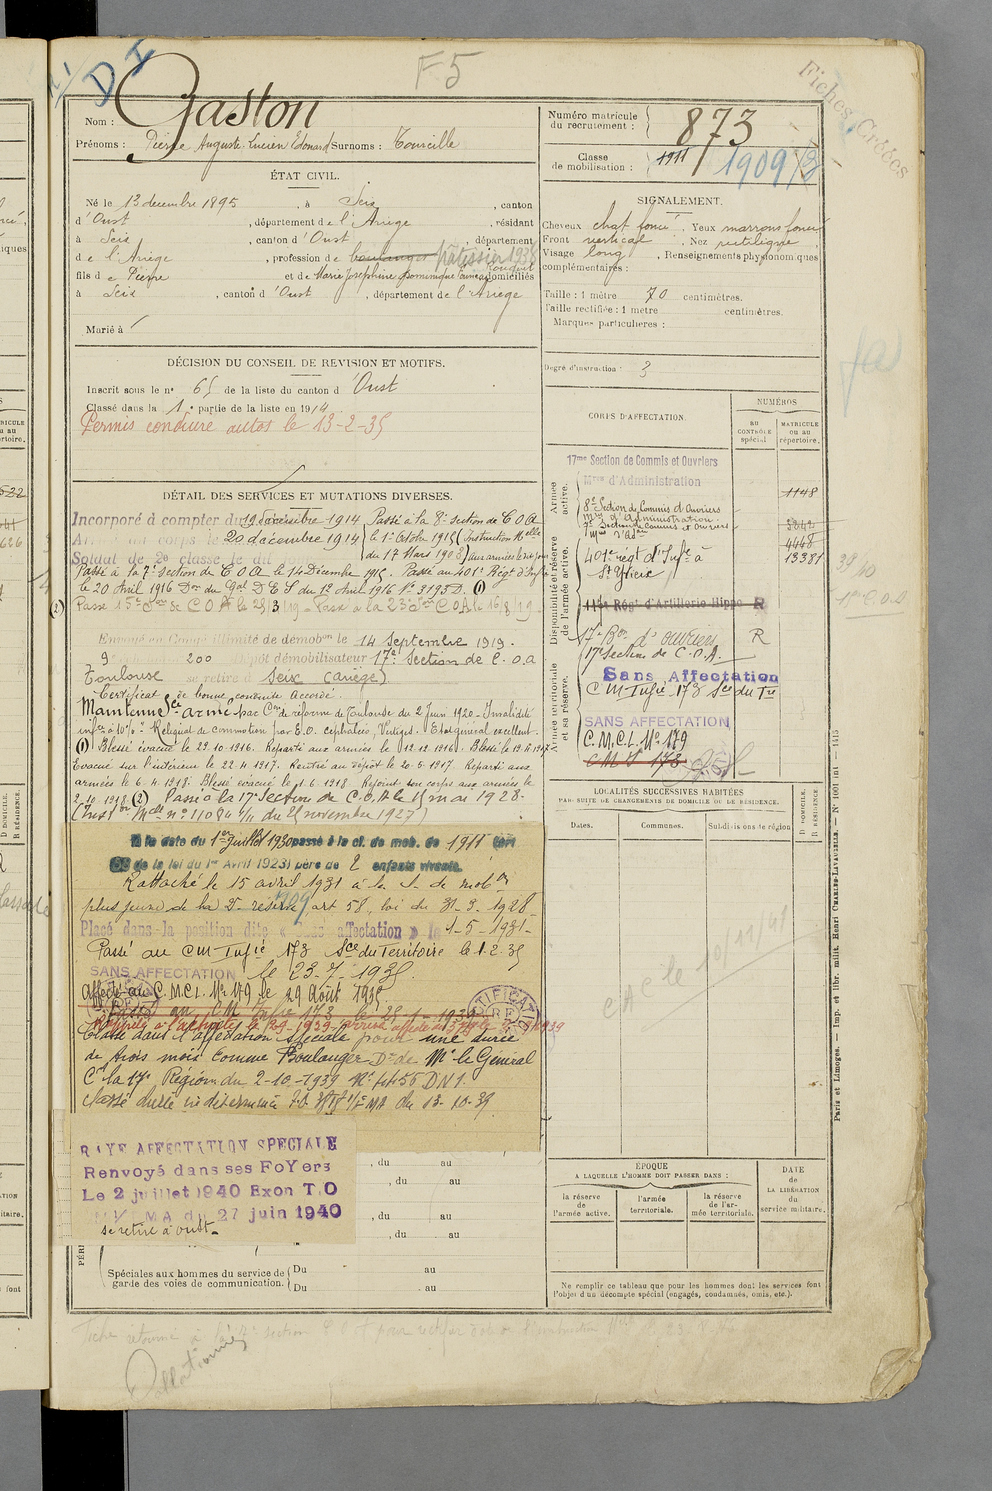 F5
Gaston
Nom :
Prénoms : Pierre Auguste Lucien Edouard Surnoms : Courcille
ÉTAT CIVIL.
Né le 13 décembre 1895, à Seix, canton
d'Oust, département de l'Ariège, résidant
à Seix, canton d'Oust, département
de l'Ariège, profession de boulanger pâtissier 1938
fils de Pierre et de Marie Joséphine Dominique domiciliés
à Seix, canton d'Oust, département de l'Ariège
Marié à
DÉCISION DU CONSEIL DE REVISION ET MOTIFS.
Inscrit sous le n° 65 de la liste du canton d'Oust
Classé dans la 1e partie de la liste en 1914
Permis conduire autos le 13-2-35
DÉTAIL DES SERVICES ET MUTATIONS DIVERSES.
Incorporé à compter du 19 décembre 1914 Passé à la 8e section de C O A
Arrivé au corps le 20 décembre 1914 le 1er Octobre 1915 (Instruction Melle
Soldat de 2e classe le dit du 17 Mars 1908)
Passé à la 7e section de C O A le 14 Décembre 1915. Passé au 401e Régt d'Infie
le 20 Avril 1916 Don du Gal D E S du 12 Avril 1916 No 3195 D. (1)
(2) Passé 15e Son de C O A le 25/3/19 - Passé à la 23e Son C O A le 16/8/19
Envoyé en Congé illimité de démobon le 14 Septembre 1919.
Dépôt démobilisateur 17e Section de C.O.A
Toulouse se retire à Seix (Ariège)
Certificat de bonne conduite Accordé.
Maintenu Sce armé par Con de réforme de Toulouse du 2 Juin 1920. Invalidité
infre à 10%. Reliquat de commotion par E.O. Céphalées, Vertiges. Etat général excellent.
(1) Blessé évacué le 29.10.1916. Reparti aux armées le 12.12.1916. Blessé le
Evacué sur l'intérieur le 22.4.1917. Rentré au dépôt le 20.5.1917. Reparti aux
armées le 6.4.1918. Blessé évacué le 1.6.1918. Rejoint son corps aux armées le
2.10.1918. (2) Passé à la 17e Section de C.O.A le 1er mai 1928.
(Inst Melle n° 11084 1/11 du 25 novembre 1927)
A la date du 1er Juillet 1930 passé à la cl. de mob. de 1911 (art
58 de la loi du 1er Avril 1923) père de 2 enfants vivants.
Rattaché le 15 avril 1931 à la cl. de mobon
plus jeune de la 2e réserve 1909 art 58, loi du 31-3-1928
Placé dans la position dite « Sans affectation » le 1-5-1931
Passé au CM Infie 173 Sce du Territoire le 1.2.35
SANS AFFECTATION le 23-7-1935
Affecté au C.M.C.L. No 179 le 29 Août 1935
Passé au CM Infie 173 le
Classé dans l'affectation spéciale pour une durée
de trois mois comme Boulanger Don de Mr le Général
Ct la 17e Région du 2-10-1939 No 4456 DN1.
Classé durée indéterminée du 13-10-39
RAYE AFFECTATION SPECIALE
Renvoyé dans ses FoYers
Le 2 juillet 1940 Exon T.O
du 27 juin 1940
se retire à Oust
, du au
, du au
, du au
, du au
Spéciales aux hommes du service de
garde des voies de communication.
Du au
Du au
Numéro matricule
du recrutement : 873
Classe
de mobilisation : 1911 1909
Fiches Créées
SIGNALEMENT.
Cheveux chat. foncé, Yeux marrons foncé
Front vertical, Nez rectiligne
Visage long, Renseignements physionomiques
complémentaires :
Taille : 1 mètre 70 centimètres.
Taille rectifiée : 1 mètre centimètres.
Marques particulières :
Degré d'instruction : 3
CORPS D'AFFECTATION.
NUMÉROS
au
CONTRÔLE
spécial
MATRICULE
ou au
répertoire.
Armée
active.
Disponibilité et réserve
de l'armée active.
Armée territoriale
et sa réserve.
17me Section de Commis et Ouvriers
Mres d'Administration 1148
8e Section de Commis et Ouvriers
Mres d'Administration 3242
7e Section de Commis et Ouvriers
Mres d'Adon 4448
401e régt d'Infie à 13381
St Yrieix
Régt d'Artillerie Hippo R
17e Bon d'ouvriers R
17e section de C.O.A.
Sans Affectation
CM Infie 173 Sce du Tre
SANS AFFECTATION
C.M.C.L. No 179
CM I 173
LOCALITÉS SUCCESSIVES HABITÉES
PAR SUITE DE CHANGEMENTS DE DOMICILE OU DE RÉSIDENCE.
Dates. Communes. Subdivisions de région.
D DOMICILE.
R RÉSIDENCE.
CAC le 10/11/41
ÉPOQUE
A LAQUELLE L'HOMME DOIT PASSER DANS :
la réserve
de
l'armée active.
l'armée
territoriale.
la réserve
de l'ar-
mée territoriale.
DATE
de
LA LIBÉRATION
du
service militaire.
Ne remplir ce tableau que pour les hommes dont les services font
l'objet d'un décompte spécial (engagés, condamnés, omis, etc.).
Paris et Limoges. — Imp. et libr. milit. Henri CHARLES-LAVAUZELLE. — N° 1001 int — 1415